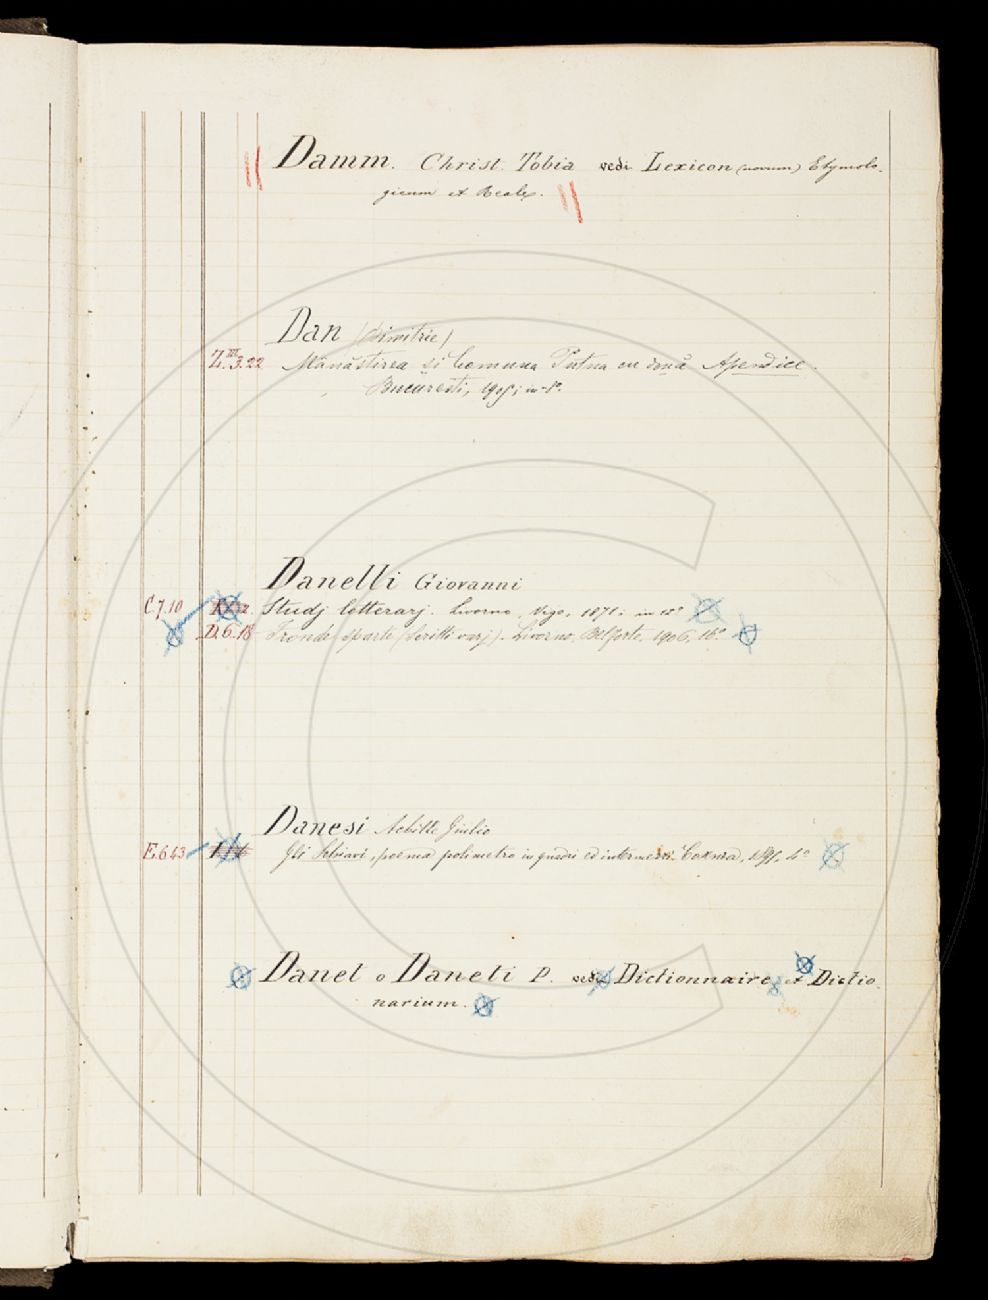 Damm. Christ. Tobia vedi Lexicon (novum) Etymolo-
gicum et Reale.
Dan (Dimitrie)
Z.III.3.22 Mănăstirea și Comuna Putna cu două Apendice.
Bucuresti, 1905; in-8°
Danelli Giovanni
C.7.10 Studj letterarj. Livorno, Vigo, 1871; in 12°
D.6.18 Fronde sparte (Scritti varj). Livorno, Belforte, 1906, 16°
Danesi Achille Giulio
E.6.43 Gli Schiavi, poema polimetro in quadri ed intermezzi. 4°
Danet o Daneti P. vedi Dictionnaire et Dictio-
narium.